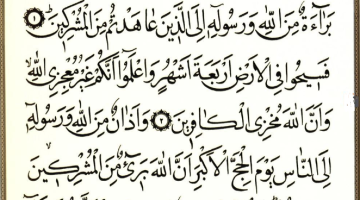 بَرَآءَةٌ مِّنَ اللّٰهِ وَرَسُولِهٖٓ اِلَى الَّذٖينَ عَاهَدْتُمْ مِنَ الْمُشْرِكٖينَ ﴿١﴾
فَسٖيحُوا فِى الْاَرْضِ اَرْبَعَةَ اَشْهُرٍ وَاعْلَمُٓوا اَنَّكُمْ غَيْرُ مُعْجِزِى اللّٰهِ
وَاَنَّ اللّٰهَ مُخْزِى الْكَافِرٖينَ ﴿٢﴾ وَاَذَانٌ مِنَ اللّٰهِ وَرَسُولِهٖٓ
اِلَى النَّاسِ يَوْمَ الْحَجِّ الْاَكْبَرِ اَنَّ اللّٰهَ بَرٖٓىءٌ مِنَ الْمُشْرِكٖينَ